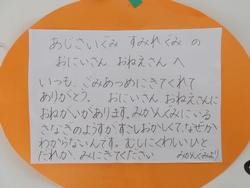 あじさいぐみ すみれぐみ の
おにいさん おねえさん へ
いつも、ごみあつめにきてくれて
ありがとう。 おにいさん おねえさんに
おねがいがあります。みかんぐみにいる
さなぎのようすが すこしおかしくて、なぜか
わからないんです。むしにくわしいひと
だれか、みにきてください
みかんぐみより